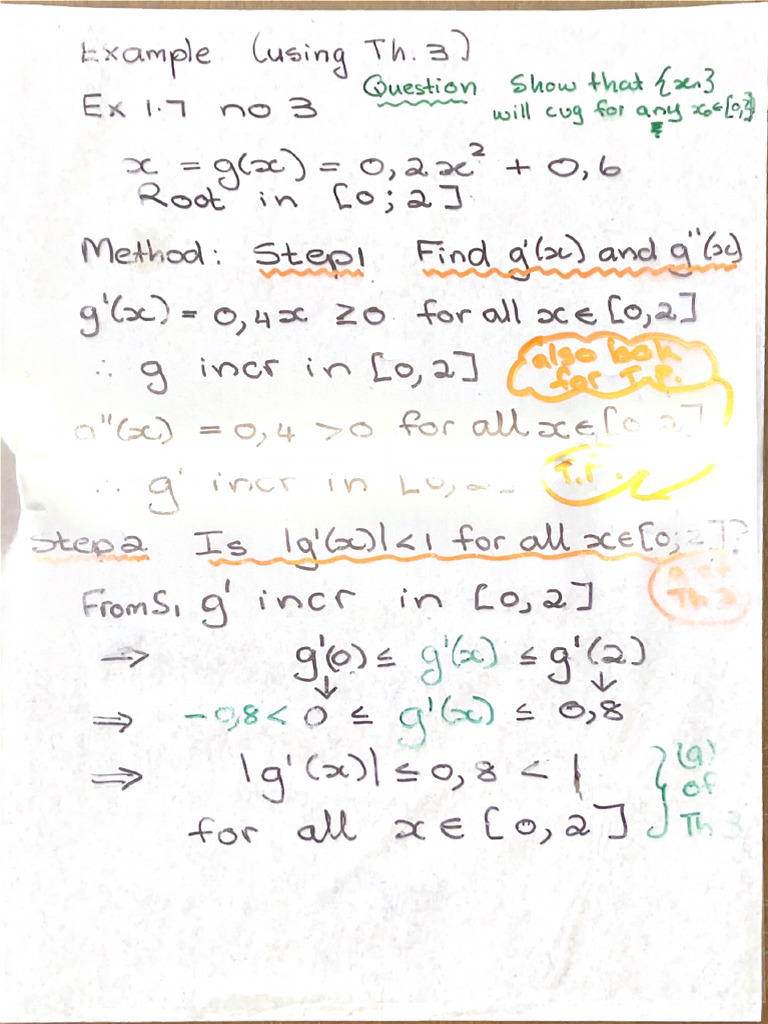 Example (using Th. 3)
Question Show that {xn}
will cvg for any x₀∈[0,2]
Ex 1.7 no 3
x = g(x) = 0,2x² + 0,6
Root in [0;2]
Method: Step1 Find g'(x) and g''(x)
g'(x) = 0,4x ≥0 for all x∈[0,2]
∴ g incr in [0,2]
also look
for T.P.
g''(x) = 0,4 >0 for all x∈[0,2]
∴ g' incr in [0,
T.P.
Step2 Is |g'(x)|<1 for all x∈[0;2]?
Th 3
From S1 g' incr in [0,2]
⇒ g'(0) ≤ g'(x) ≤ g'(2)
↓ ↓
⇒ -0,8< 0 ≤ g'(x) ≤ 0,8
⇒ |g'(x)| ≤ 0,8 < 1
for all x∈[0,2]
(a)
of
Th 3